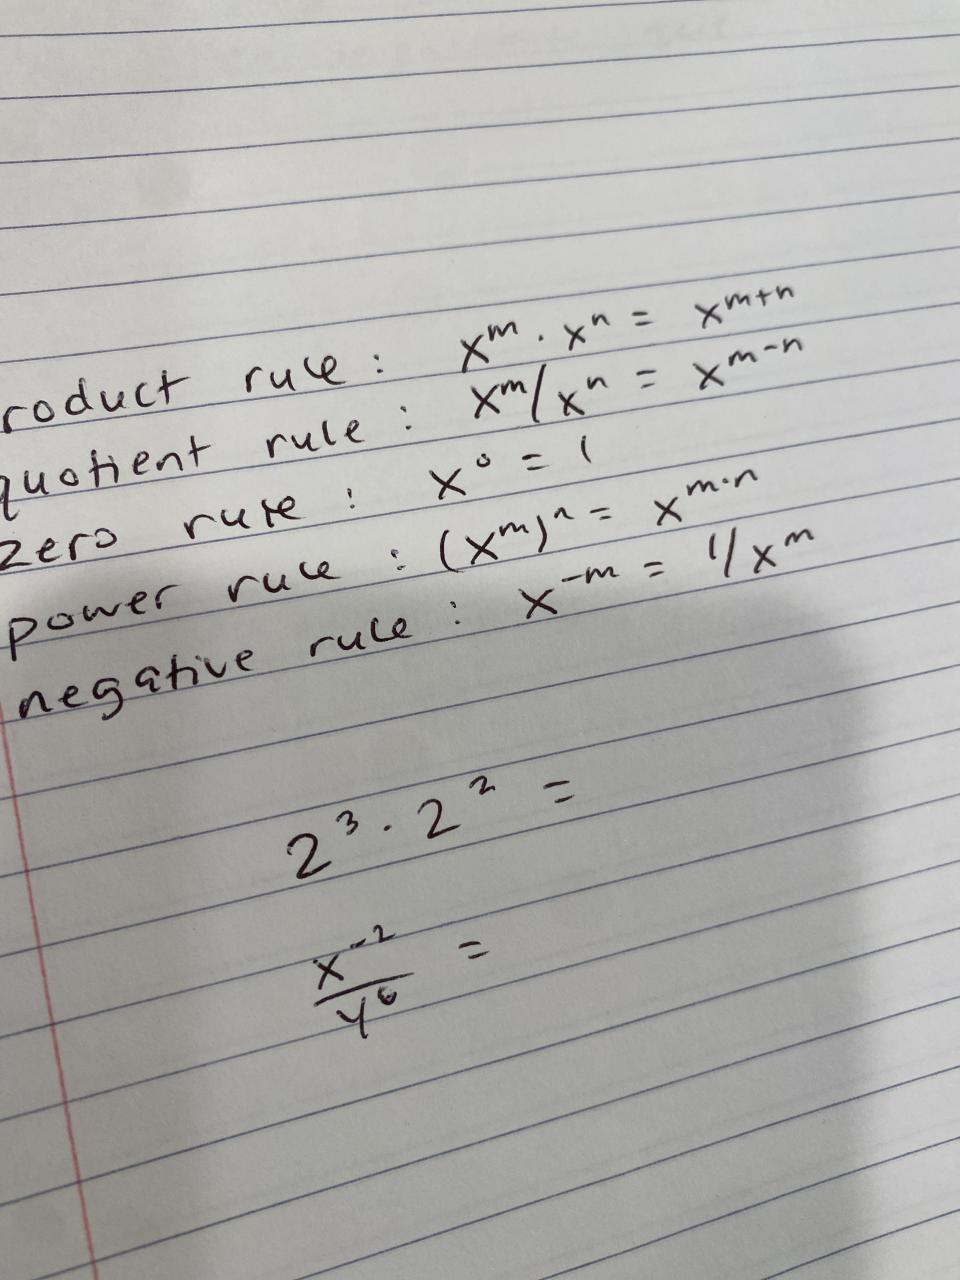 roduct rule : x^m · x^n = x^{m+n}
quotient rule : x^m/x^n = x^{m-n}
zero rule : x^0 = 1
power rule : (x^m)^n = x^{m·n}
negative rule : x^{-m} = 1/x^m
2^3 · 2^2 =
x^{-2}/y^6 =